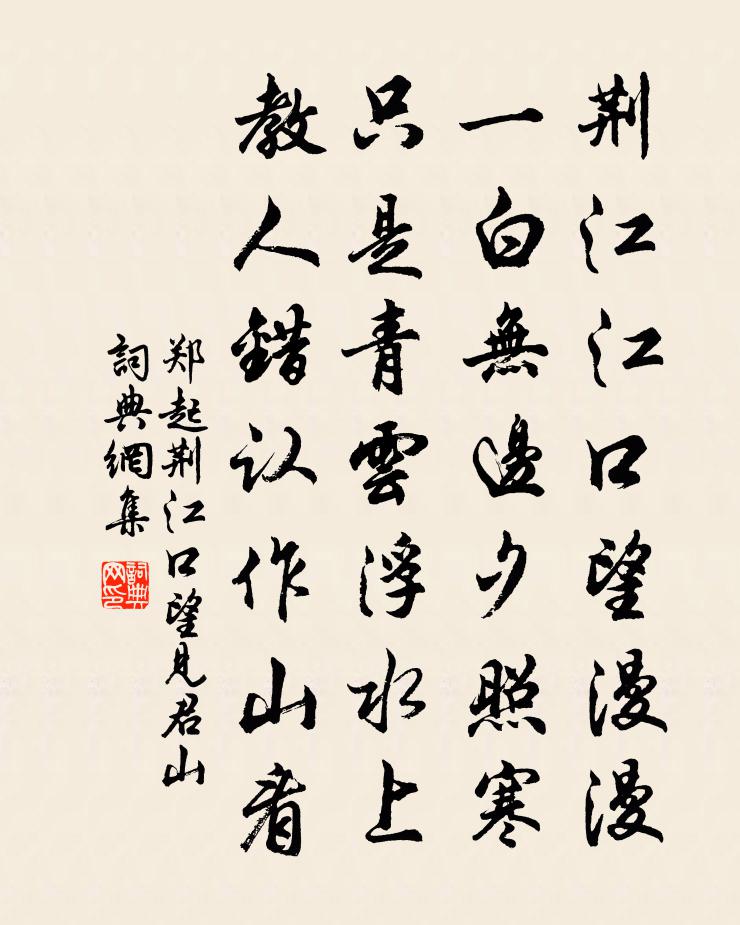 荆江江口望漫漫
一白無邊夕照寒
只是青雲浮水上
教人錯认作山看
郑起荆江口望見君山
詞典網集
詞典网印